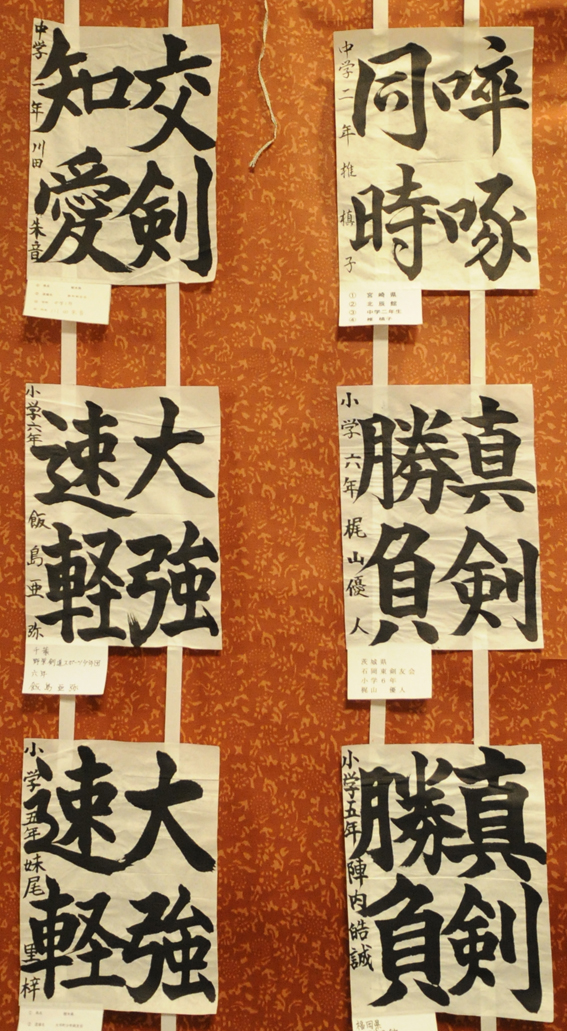 啐啄
同時
中学二年 椎 槙子
① 宮崎県
② 北辰館
③ 中学二年生
交剣
知愛
川田 朱音
真剣
勝負
小学六年 梶山優人
茨城県
石岡東剣友会
小学6年
梶山 優人
大強
速軽
小学六年 飯島亜弥
千葉
六年
飯島亜弥
真剣
勝負
小学五年 陣内皓誠
福岡県
大強
速軽
小学五年 妹尾 里梓